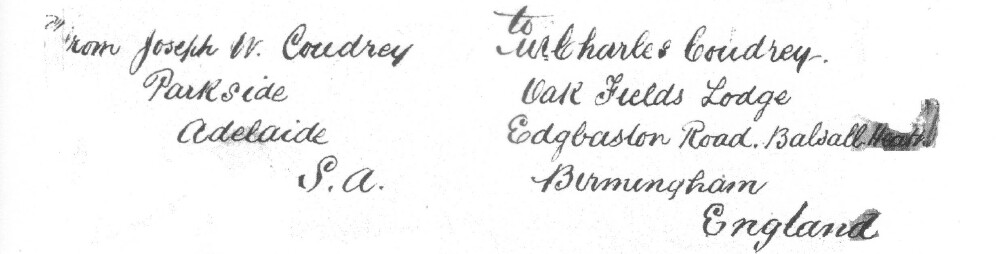 From Joseph W. Coudrey
Parkside
Adelaide
S. A.
to
Mr Charles Coudrey.
Oak Fields Lodge
Edgbaston Road. Balsall Heath
Birmingham
England